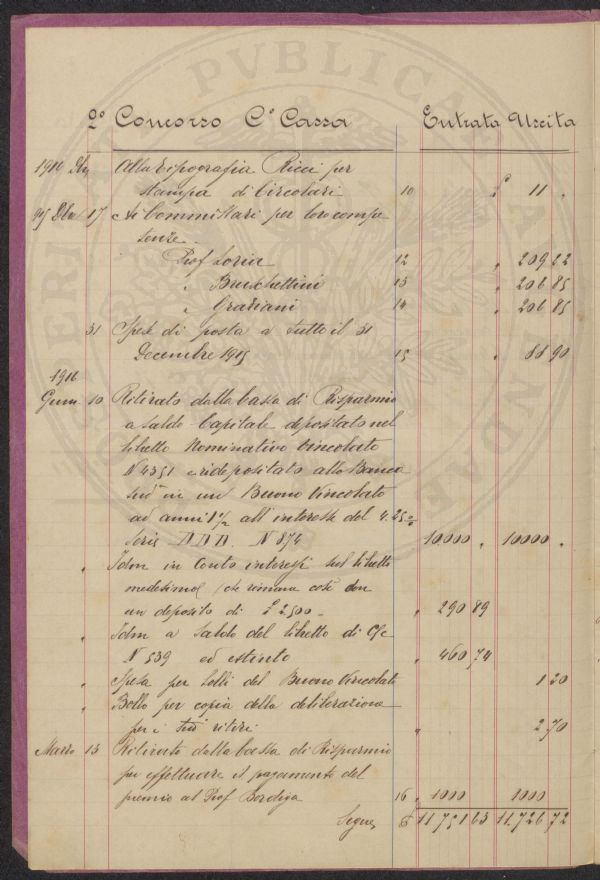 PVBLICA
2º Concorso Cº Cassa Entrata Uscita
Alla tipografia Ricci per
stampa di Circolari 10 £ 11 "
17 Ai Commissari per loro compe
tenze
Prof Loria 12 " 209 22
" Bruschettini 13 " 206 85
" Graziani 14 " 206 85
31 Spese di posta a tutto il 31
Decembre 1915 15 " 88 90
1916
Genn. 10 Ritirato dalla Cassa di Risparmio
a saldo Capitale depositato nel
libretto Nominativo vincolato
N 4351 e ridepositato alla Banca
sudª in un Buono Vincolato
ad anni 1 ½ all'interesse del 4.25 %
Serie DDD. N 874 10000 " 10000 "
" Idm in Conto interessi sul libretto
medesimo (che rimane così con
un deposito di £ 2500 - " 290 89
" Idm a Saldo del libretto di C/c
N 539 ed estinto " 460 74
" Spesa per bolli del Buono Vincolato 1 20
" Bollo per copia della deliberazione
per i suoi ritiri " 2 70
Marzo 13 Ritirato dalla Cassa di Risparmio
per effettuare il pagamento del
premio al Prof Bordiga 16 " 1000 1000
Segue £ 11751 63 11.726 72